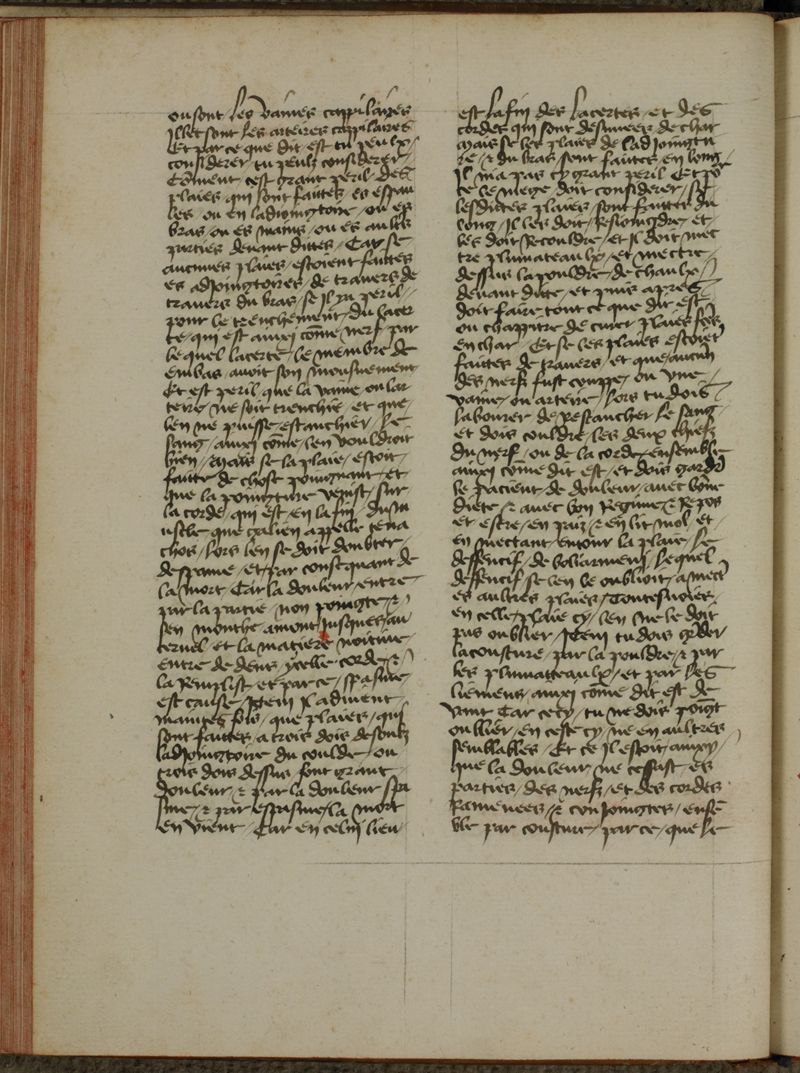 ou sont les vaines cappilaires
Illec sont les arteires cappilaires
Et par ce que dit est tu peulx
considerer tu peulx considerer
Cōment cest grant peril des
plaies qui sont faittes es espau
les ou en ladioingtoire ou es
bras ou es mains ou es aultres
parties deuant dittes Car se
aucunes plaies estoient faittes
es adioingtoires de trauers de
trauers du bras se il y a peril
pour le trenchement du lacer
te qui est aussi cōme nerf par
lequel lacerte le membre de
embas auoit son mouuement
Et est peril que la vaine ou lar
tere ne soit trenchie et que
len ne puisse estanchier le
sang aussi cōme len vouldroit
bien Mais se la plaie estoit
faitte de chose poingnant et
que la poingture venist sur
la corde qui est en la fin du mu
uscle que galien appelle tena
chos lors len se doit doubter
de spasme et par consequant de
la mort Car la douleur entre
par la partie non poingte ⁊
sen monthe amont Jusques au
ceruel et la matiere nuitiue
entre dedens ycelle corde ⁊
la Remplist et par ce spasme
est cause Item Il aduient
maintes fois que plaies qui
sont faittes a trois dois desoubz
ladioingtoire du coulde ou
trois dois dessus font grant
douleur ⁊ par la douleur spa
sme ⁊ par espasme la mort
en vient Car en celui lieu
est la fin des lacertes et des
cordes qui sont desnueez de char
Mais se les plaies de ladioingtu
re ⁊ du bras sont faittes en long
Il ni a pas cy grant peril Et pō
ce le miege doit considerer se
lesdittes plaies sont faittes du
long Il les doit Resioingdre et
les doit Recouldre et Il doit mec
tre plumateaulx et mectre
dessus la pouldre de chaulx
deuant ditte et puis apres
doit faire tout ce que dit est
ou chappitre de curer plaies fces
en char Et se les plaies estoiēt
faittes de trauers et que aucun
des nerfs fust couppe ou vne
vaine ou artere lors tu dois
labourer de Restancher le sang
et dois couldre les deux chiefz
du nerf ou de la corde ensemble
aussi cōme dit est et dois garder
le pacient de douleur auec bōne
diete ⁊ auec bon Regime ⁊ Repos
et estre en paiz ⁊ en lit mol et
en mectant entour la plaie le
deffencif de boliarmenj lequel
deffencif se len le oublioit a mectre
es aultres plaies Toutesuoies
en celle plaie cy len ne le doit
pas oublier Item tu dois garder
la cousture par la pouldre ⁊ par
les plumatteaulx et par les
liemens aussi cōme dit est de
vant Car cecy tu ne dois poīgt
oublier en ceste cy ne en aultres
semblables Et ce Il estoit aussy
que la douleur ne cessast es
parties des nerfs et des cordes
Ramenees ⁊ conioingtes ensē
ble par cousture par ce que le